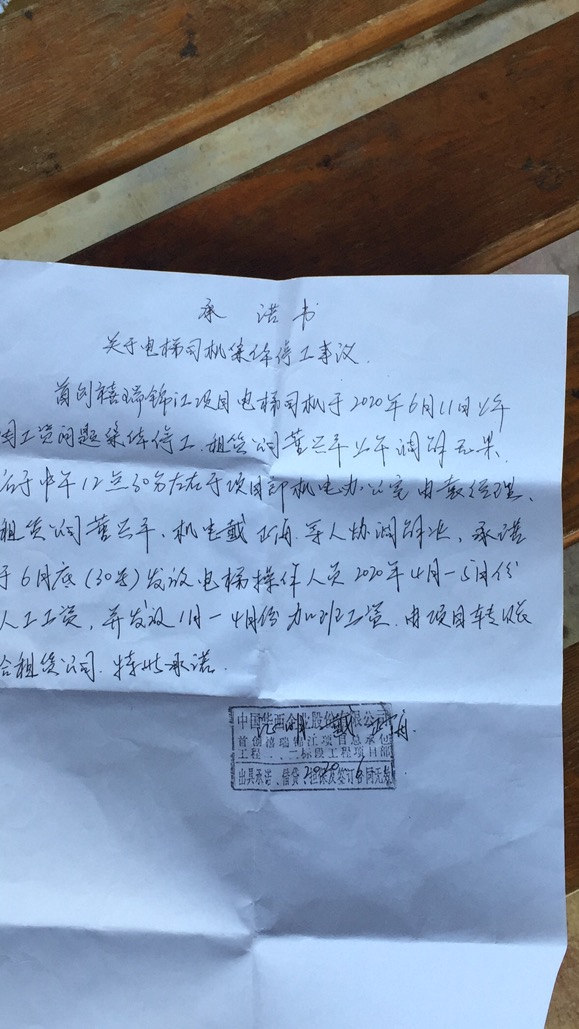 承诺书
关于电梯司机集体停工事议.
首创禧瑞锦江项目电梯司机于2020年6月11日上午
因工资问题集体停工.租赁公司董兰平上午调解无果.
后于中午12点30分左右于项目部机电办公室由敖经理、
租赁公司董兰平、机电戴正海等人协调解决,承诺
于6月底(30号)发放电梯操作人员2020年4月-5月份
人工工资,并发放1月-4月份加班工资.由项目转账
给租赁公司.特此承诺.
中国华西企业股份有限公司
首创禧瑞锦江项目总承包
工程 二标段工程项目部
出具承诺、借贷、担保及签订合同无效
戴正海
2020 6